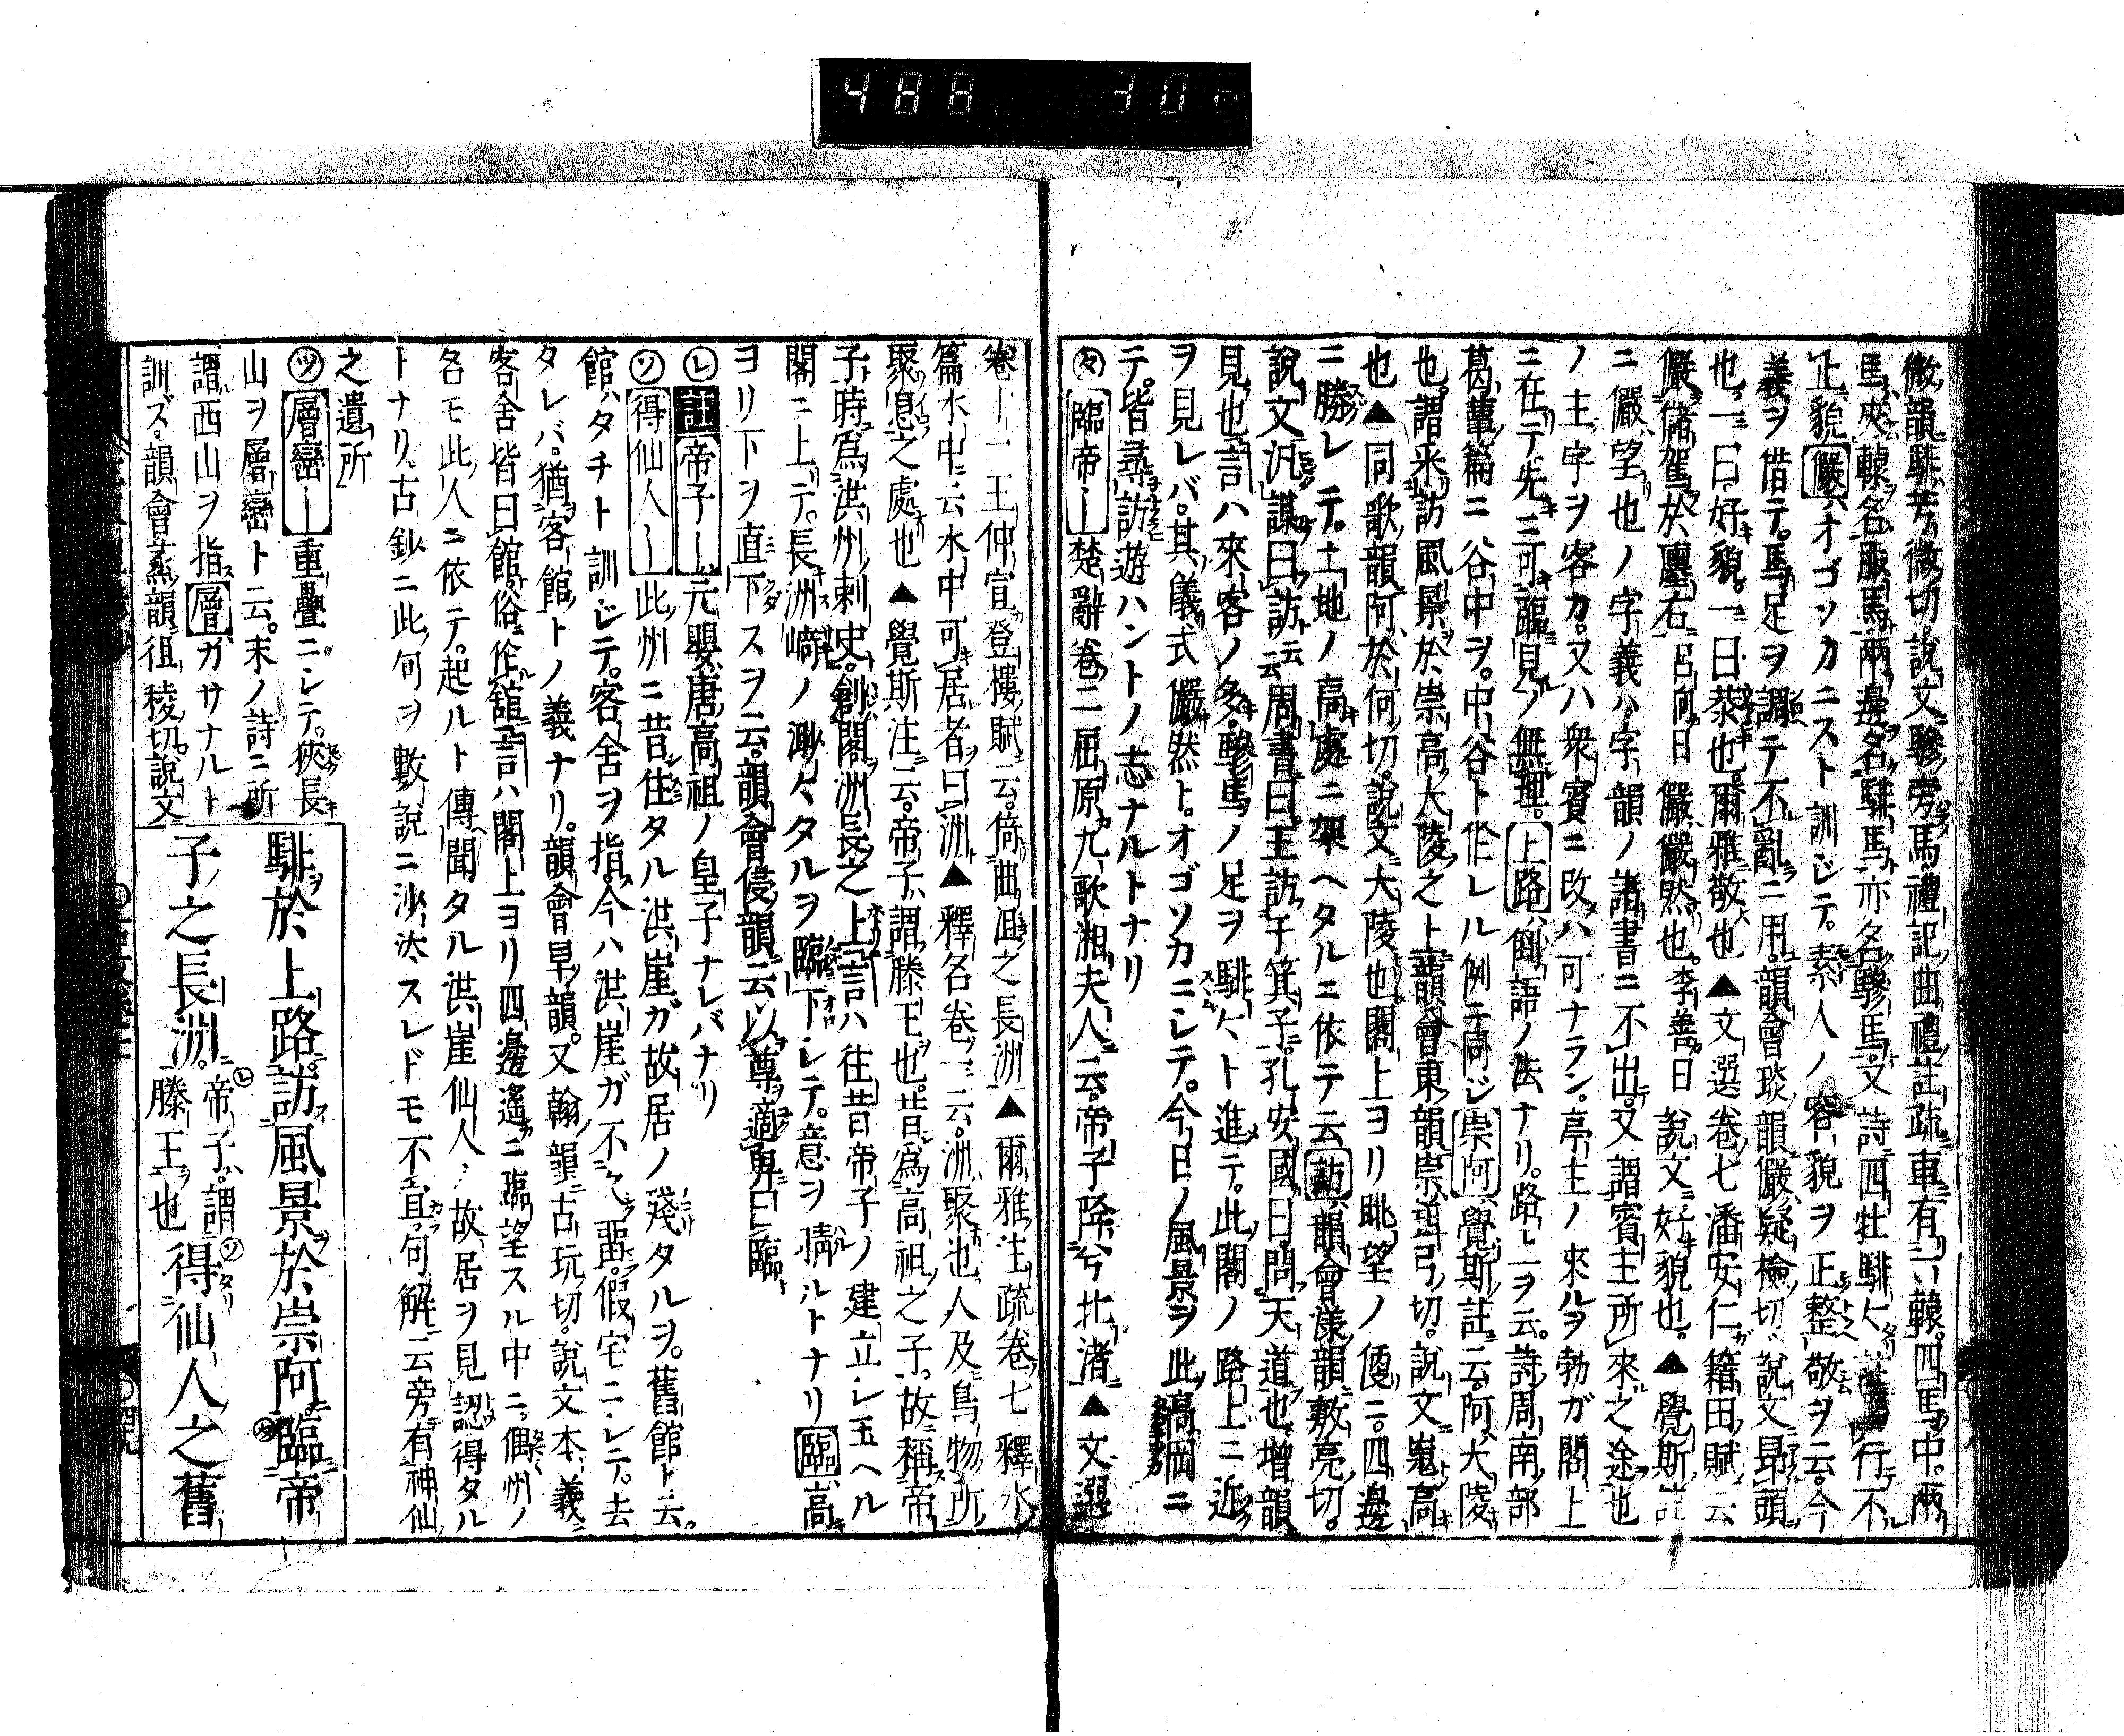 微韻騑芳微切說文驂旁馬禮記曲禮註疏車有一轅四馬中兩
馬夾轅名服馬兩邊名騑馬亦名驂馬又詩四牡騑々註行不
止貌 儼オゴソカニスト訓ジテ素人ノ容貌ヲ正整敬ヲ云今
義ヲ借テ馬足ヲ調テ不亂ニ用韻會琰韻儼疑檢切說文昂頭
也一曰好貌一曰恭也爾雅敬也▲文選卷七潘安仁籍田賦云
儼儲駕於廛右呂向曰儼儼然也李善曰說文好貌也▲覺斯註
ニ儼望也ノ字義ハ字韻ノ諸書ニ不出又謂賓主所來之途也
ノ主字ヲ客カ又ハ衆賓ニ改ハ可ナラン亭主ノ來ルヲ勃ガ閣上
ニ在テ先ニ可臨見ノ無理 上路倒語ノ法ナリ路上ヲ云詩周南部
葛蕈篇ニ谷中ヲ中谷ト作レル例ニ同ジ 崇阿覺斯註云阿大陵
也謂釆訪風景於崇高大陵之上韻會東韻崇逆弓切說文嵬高
也▲同歌韻阿於何切說文大陵也閣上ヨリ眺望ノ便ニ四邊
ニ勝レテ土地ノ高處ニ架ヘタルニ依テ云 訪韻會漾韻敷亮切
說文汎謀曰訪云周書曰王訪于箕子孔安國曰問天道也增韻
見也 言ハ來客ノ多驂馬ノ足ヲ騑々ト進テ此閣ノ路上ニ近
ヲ見レバ其儀式儼然トオゴソカニシテ今日ノ風景ヲ此高岡ニ
テ皆尋訪遊ハントノ志ナルトナリ
タ 臨帝〡 楚辭卷二屈原九歌湘夫人云帝子降兮北渚▲文選
卷十一王仲宣登樓賦云倚曲沮之長洲▲爾雅注疏卷七釋水
篇水中云水中可居者曰洲▲釋名卷一云洲聚也人及鳥物所
聚息之處也▲覺斯注云帝子謂滕王也昔爲高祖之子故稱帝
子時爲洪州刺史創閣洲長之上 言ハ往昔帝子ノ建立シ玉ヘル
閣ニ上テ長洲﨑ノ渺々タルヲ臨下シテ意ヲ晴ルトナリ 臨高
ヨリ下ヲ直下スヲ云韻會侵韻云以尊適卑曰臨
レ 註 帝子〡 元嬰唐高祖ノ皇子ナレバナリ
ソ 得仙人〡 此州ニ昔住タル洪崖ガ故居ノ殘タルヲ舊館ト云
館タチト訓ジテ客舍ヲ指今ハ洪崖ガ不留假宅ニシテ去
タレバ猶客館トノ義ナリ韻會旱韻又翰韻古玩切說文本義
客舍皆曰館俗作舘 言ハ閣上ヨリ四邊遙ニ臨望スル中ニ偶州ノ
各モ此人ニ依テ起ルト傳聞タル洪崖仙人ノ故居ヲ見認得タル
トナリ古鈔ニ此句ヲ數說ニ沙汰スレドモ不且句解云旁有神仙
之遺所
ツ 層巒〡 重疊ニシテ狹長
山ヲ層巒ト云末ノ詩ニ所
謂西山ヲ指 層カサナルト
訓ズ韻會蒸韻徂稜切說文
騑於上路訪風景於崇阿臨帝
子之長洲 帝子謂滕王也 得仙人之舊